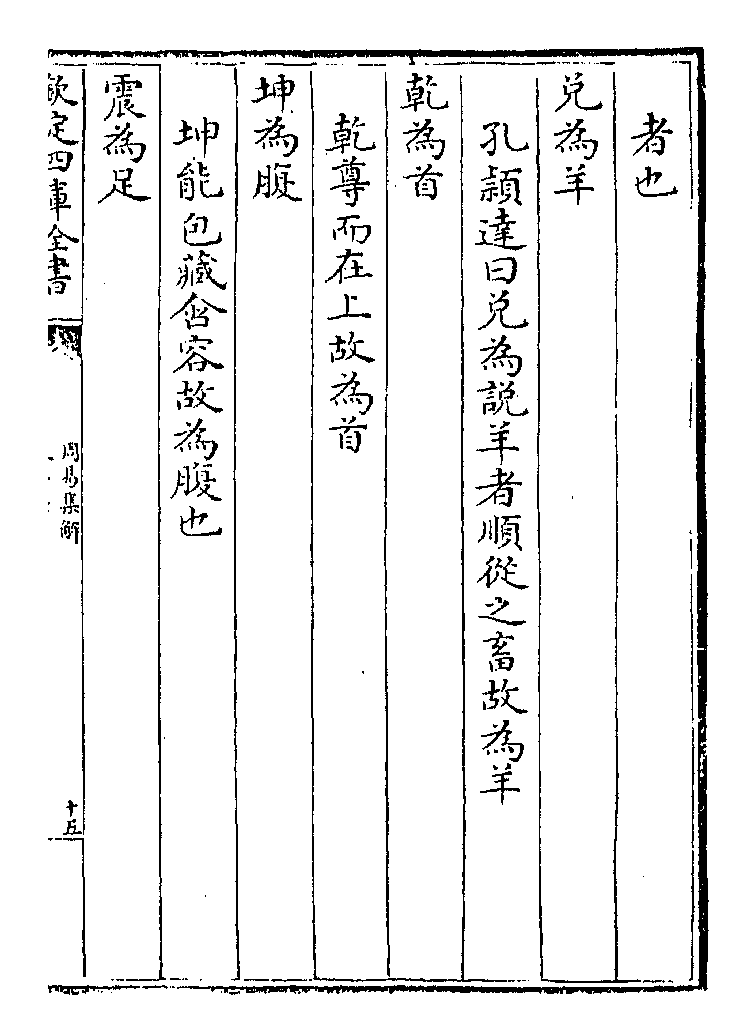 者也
兑為羊
孔頴達曰兑為說羊者順從之畜故為羊
乾為首
乾尊而在上故為首
坤為腹
坤能包藏含容故為腹也
震為足
欽定四庫全書
周易集解
十五